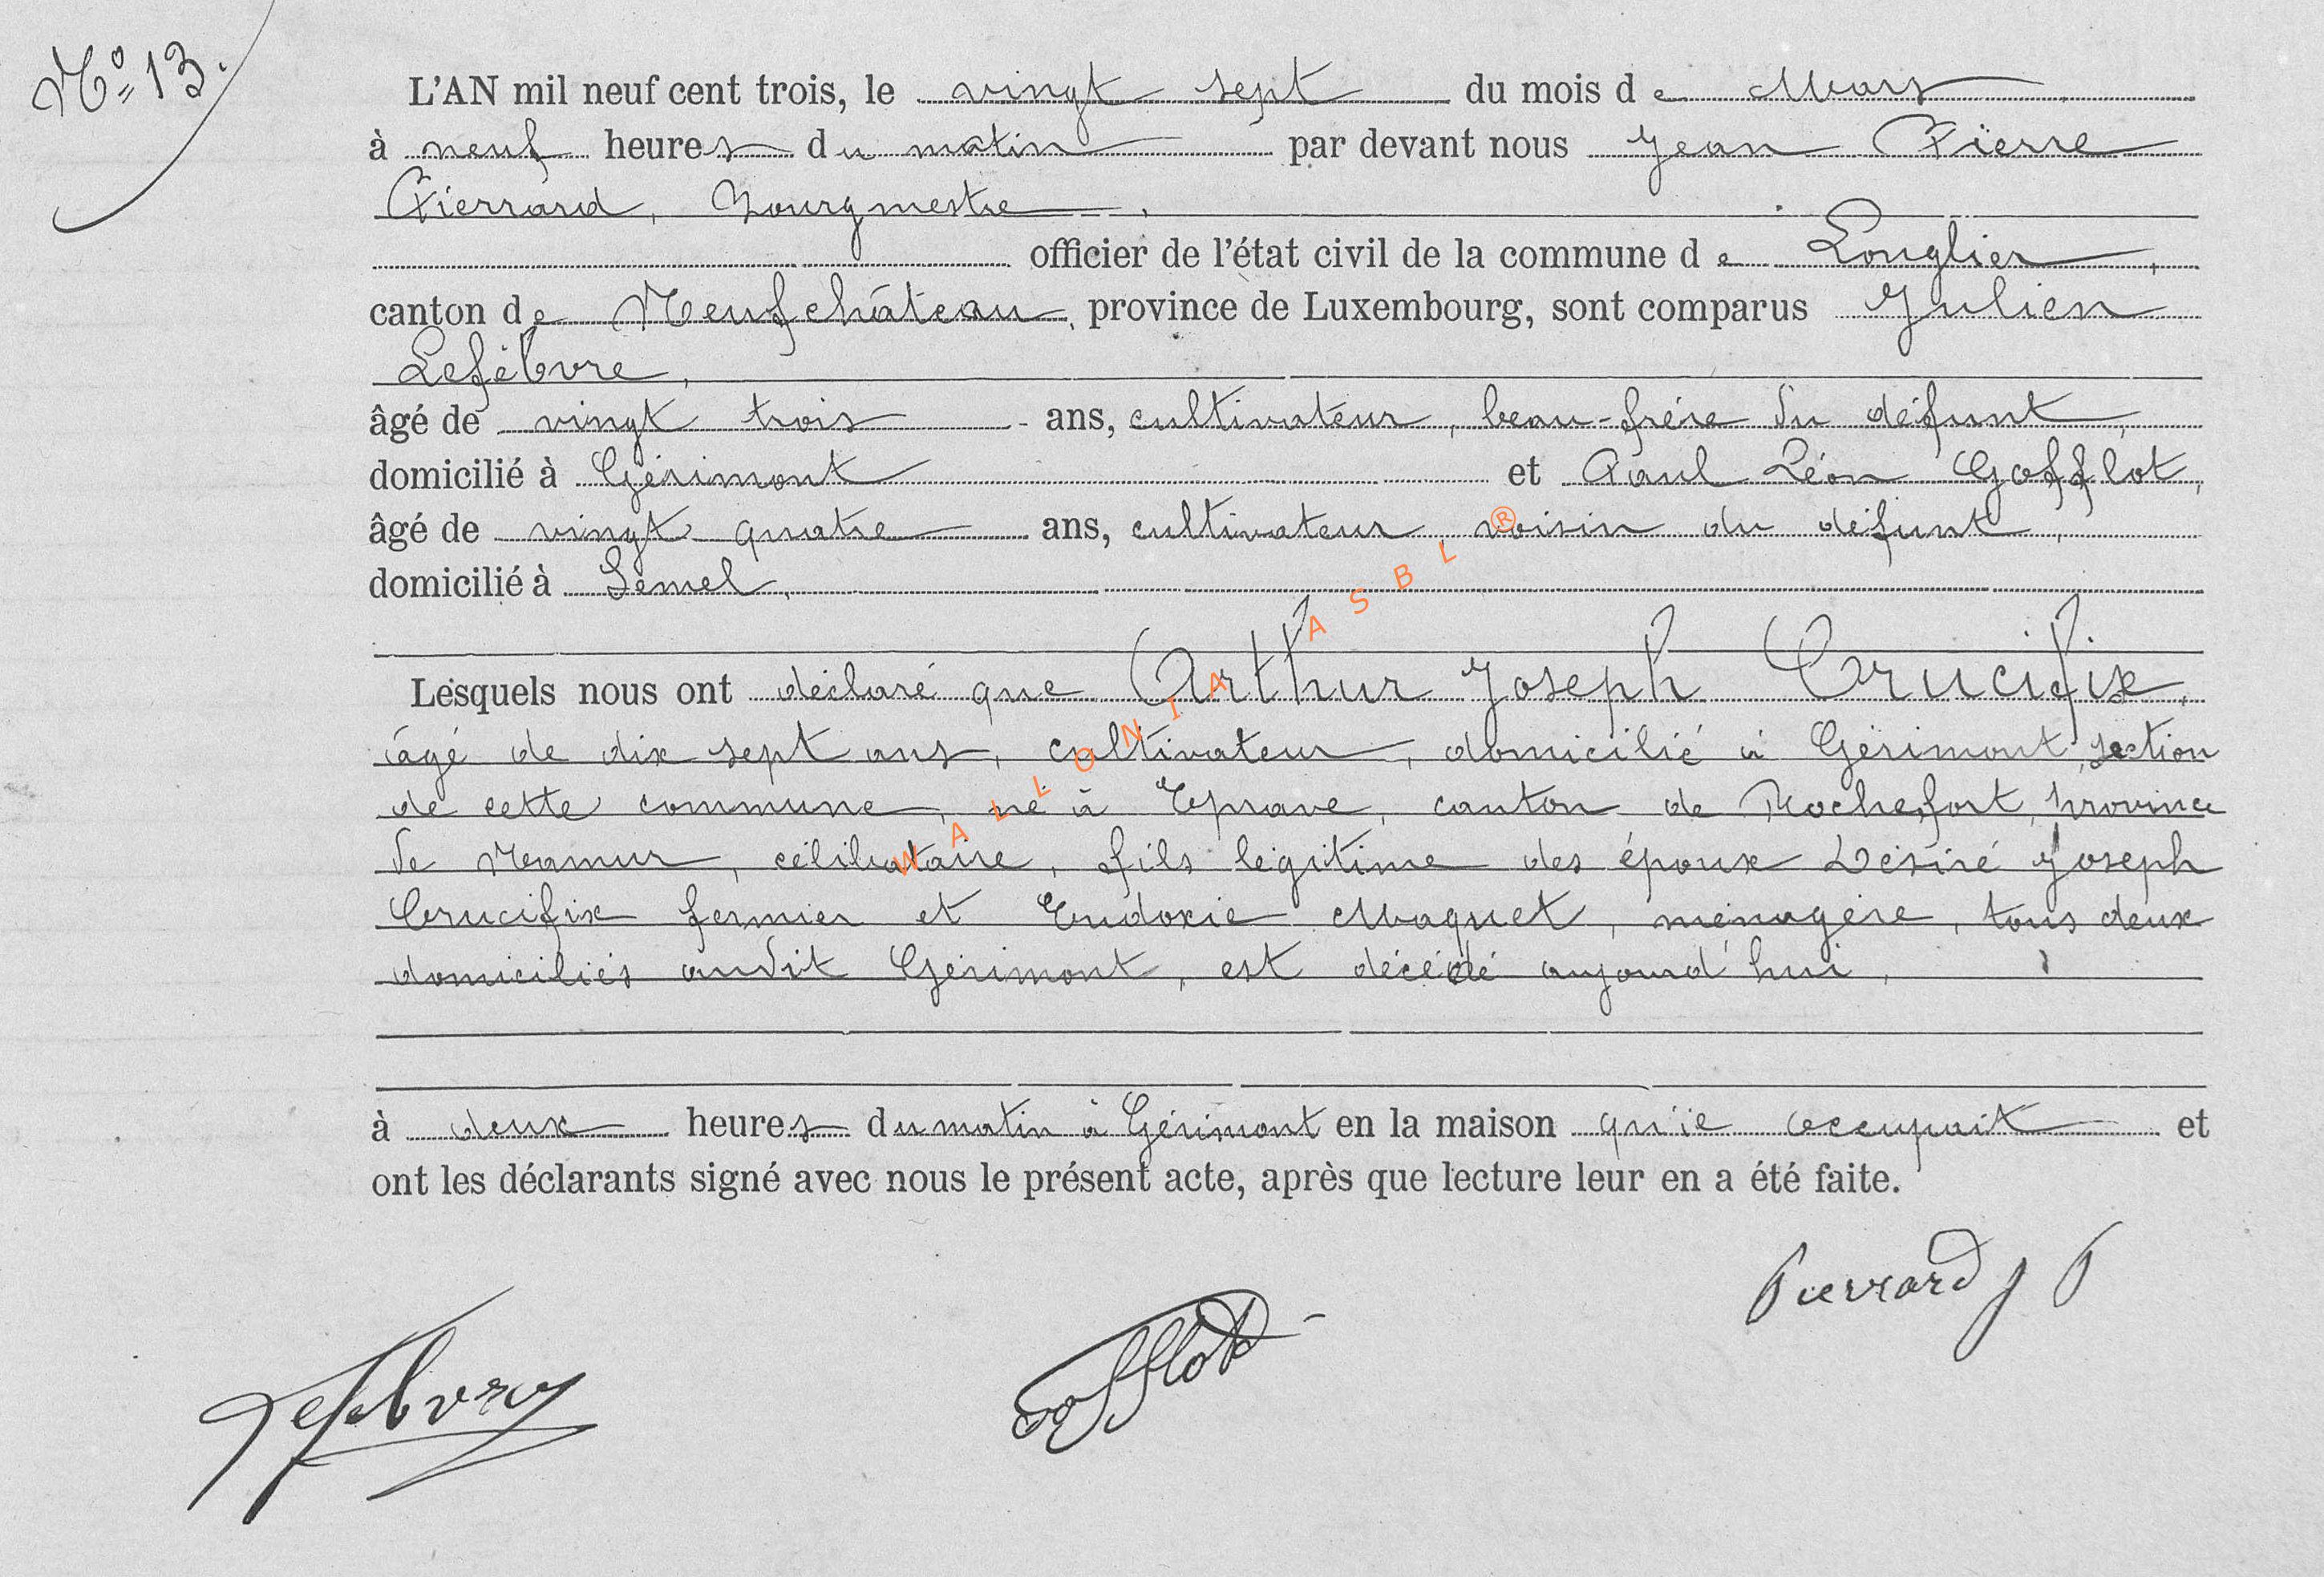 N° 13.
L'AN mil neuf cent trois, le vingt sept du mois de Mars
à neuf heures du matin par devant nous Jean Pierre
Pierrard, bourgmestre,
officier de l'état civil de la commune de Longlier,
canton de Neufchâteau, province de Luxembourg, sont comparus Julien
Lefèbvre,
âgé de vingt trois ans, cultivateur, beau-frére du défunt,
domicilié à Gérimont et Paul Léon Gofflot,
âgé de vingt quatre ans, cultivateur, voisin du défunt,
domicilié à Semel,
Lesquels nous ont déclaré que Arthur Joseph Crucifix,
âgé de dix sept ans, cultivateur, domicilié à Gérimont, section
de cette commune, né à Eprave, canton de Rochefort, province
de Namur, célibataire, fils légitime des époux Désiré Joseph
Crucifix fermier et Eudoxie Maquet, ménagère, tous deux
domiciliés audit Gérimont, est décédé aujourd'hui,
à deux heures du matin à Gérimont en la maison qu'il occupait et
ont les déclarants signé avec nous le présent acte, après que lecture leur en a été faite.
Pierrard J P
Gofflot
Lefebvre
WALLONIA ASBL ®